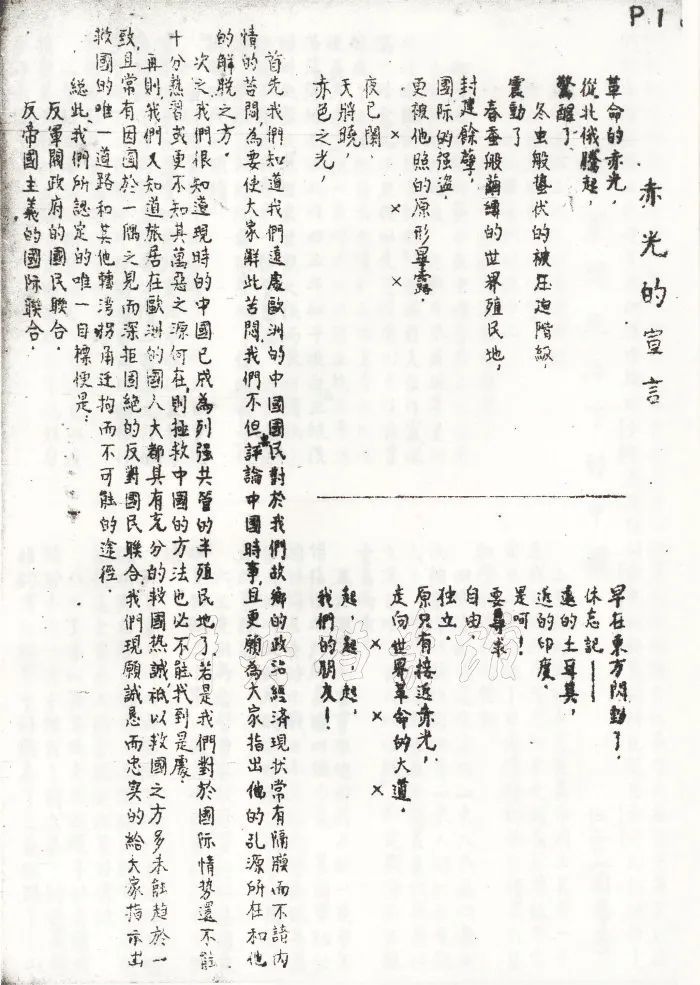 P.1
赤光的宣言
革命的赤光，
從北俄騰起，
驚醒了
冬虫般蟄伏的被压迫階級，
震動了
春蚕般繭縛的世界殖民地，
封建餘孽，
國际的强盗，
更被他照的原形畢露，
× × ×
夜已闌，
天將曉，
赤色之光，
早在東方閃動了，
休忘記——
遠的土耳其，
近的印度，
是呵！
要尋求
自由，
独立，
原只有接近赤光，
走向世界革命的大道，
× × ×
起，起，起，
我們的朋友！
首先我們知道我們遠處歐洲的中國國民對於我們故鄉的政治經済現状常有隔膜而不諳内
情的苦悶，為要使大家解此苦悶，我們不但評論中國時事，且更願為大家指出他的乱源所在和他
的解脱之方，
次之我們很知道現時的中國已成為列强共管的半殖民地了，若是我們對於國际情势還不能
十分熟習或更不知其萬惡之源何在，則拯救中國的方法也必不能找到是處，
再則我們又知道旅居在歐洲的國人大都具有充分的救国热誠，衹以救國之方多未能趋於一
致，且常有因囿於一隅之見而深拒固絶的反對國民联合，我們現願誠恳而忠实的给大家指示出
救國的唯一道路和其他轉湾拐角迂拘而不可能的途徑，
総此，我們所認定的唯一目標便是：
反軍閥政府的國民联合，
反帝國主義的國际联合，